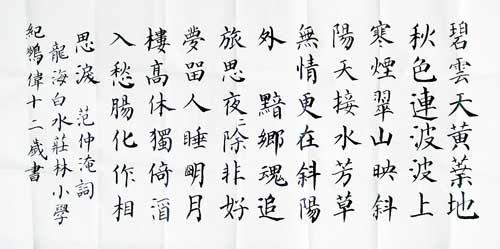 碧雲天黃葉地
秋色連波波上
寒煙翠山映斜
陽天接水芳草
無情更在斜陽
外 黯鄉魂追
旅思夜二除非好
夢留人睡明月
樓高休獨倚酒
入愁腸化作相
思淚 范仲淹詞
龍海白水莊林小學
紀鵬偉十二歲書